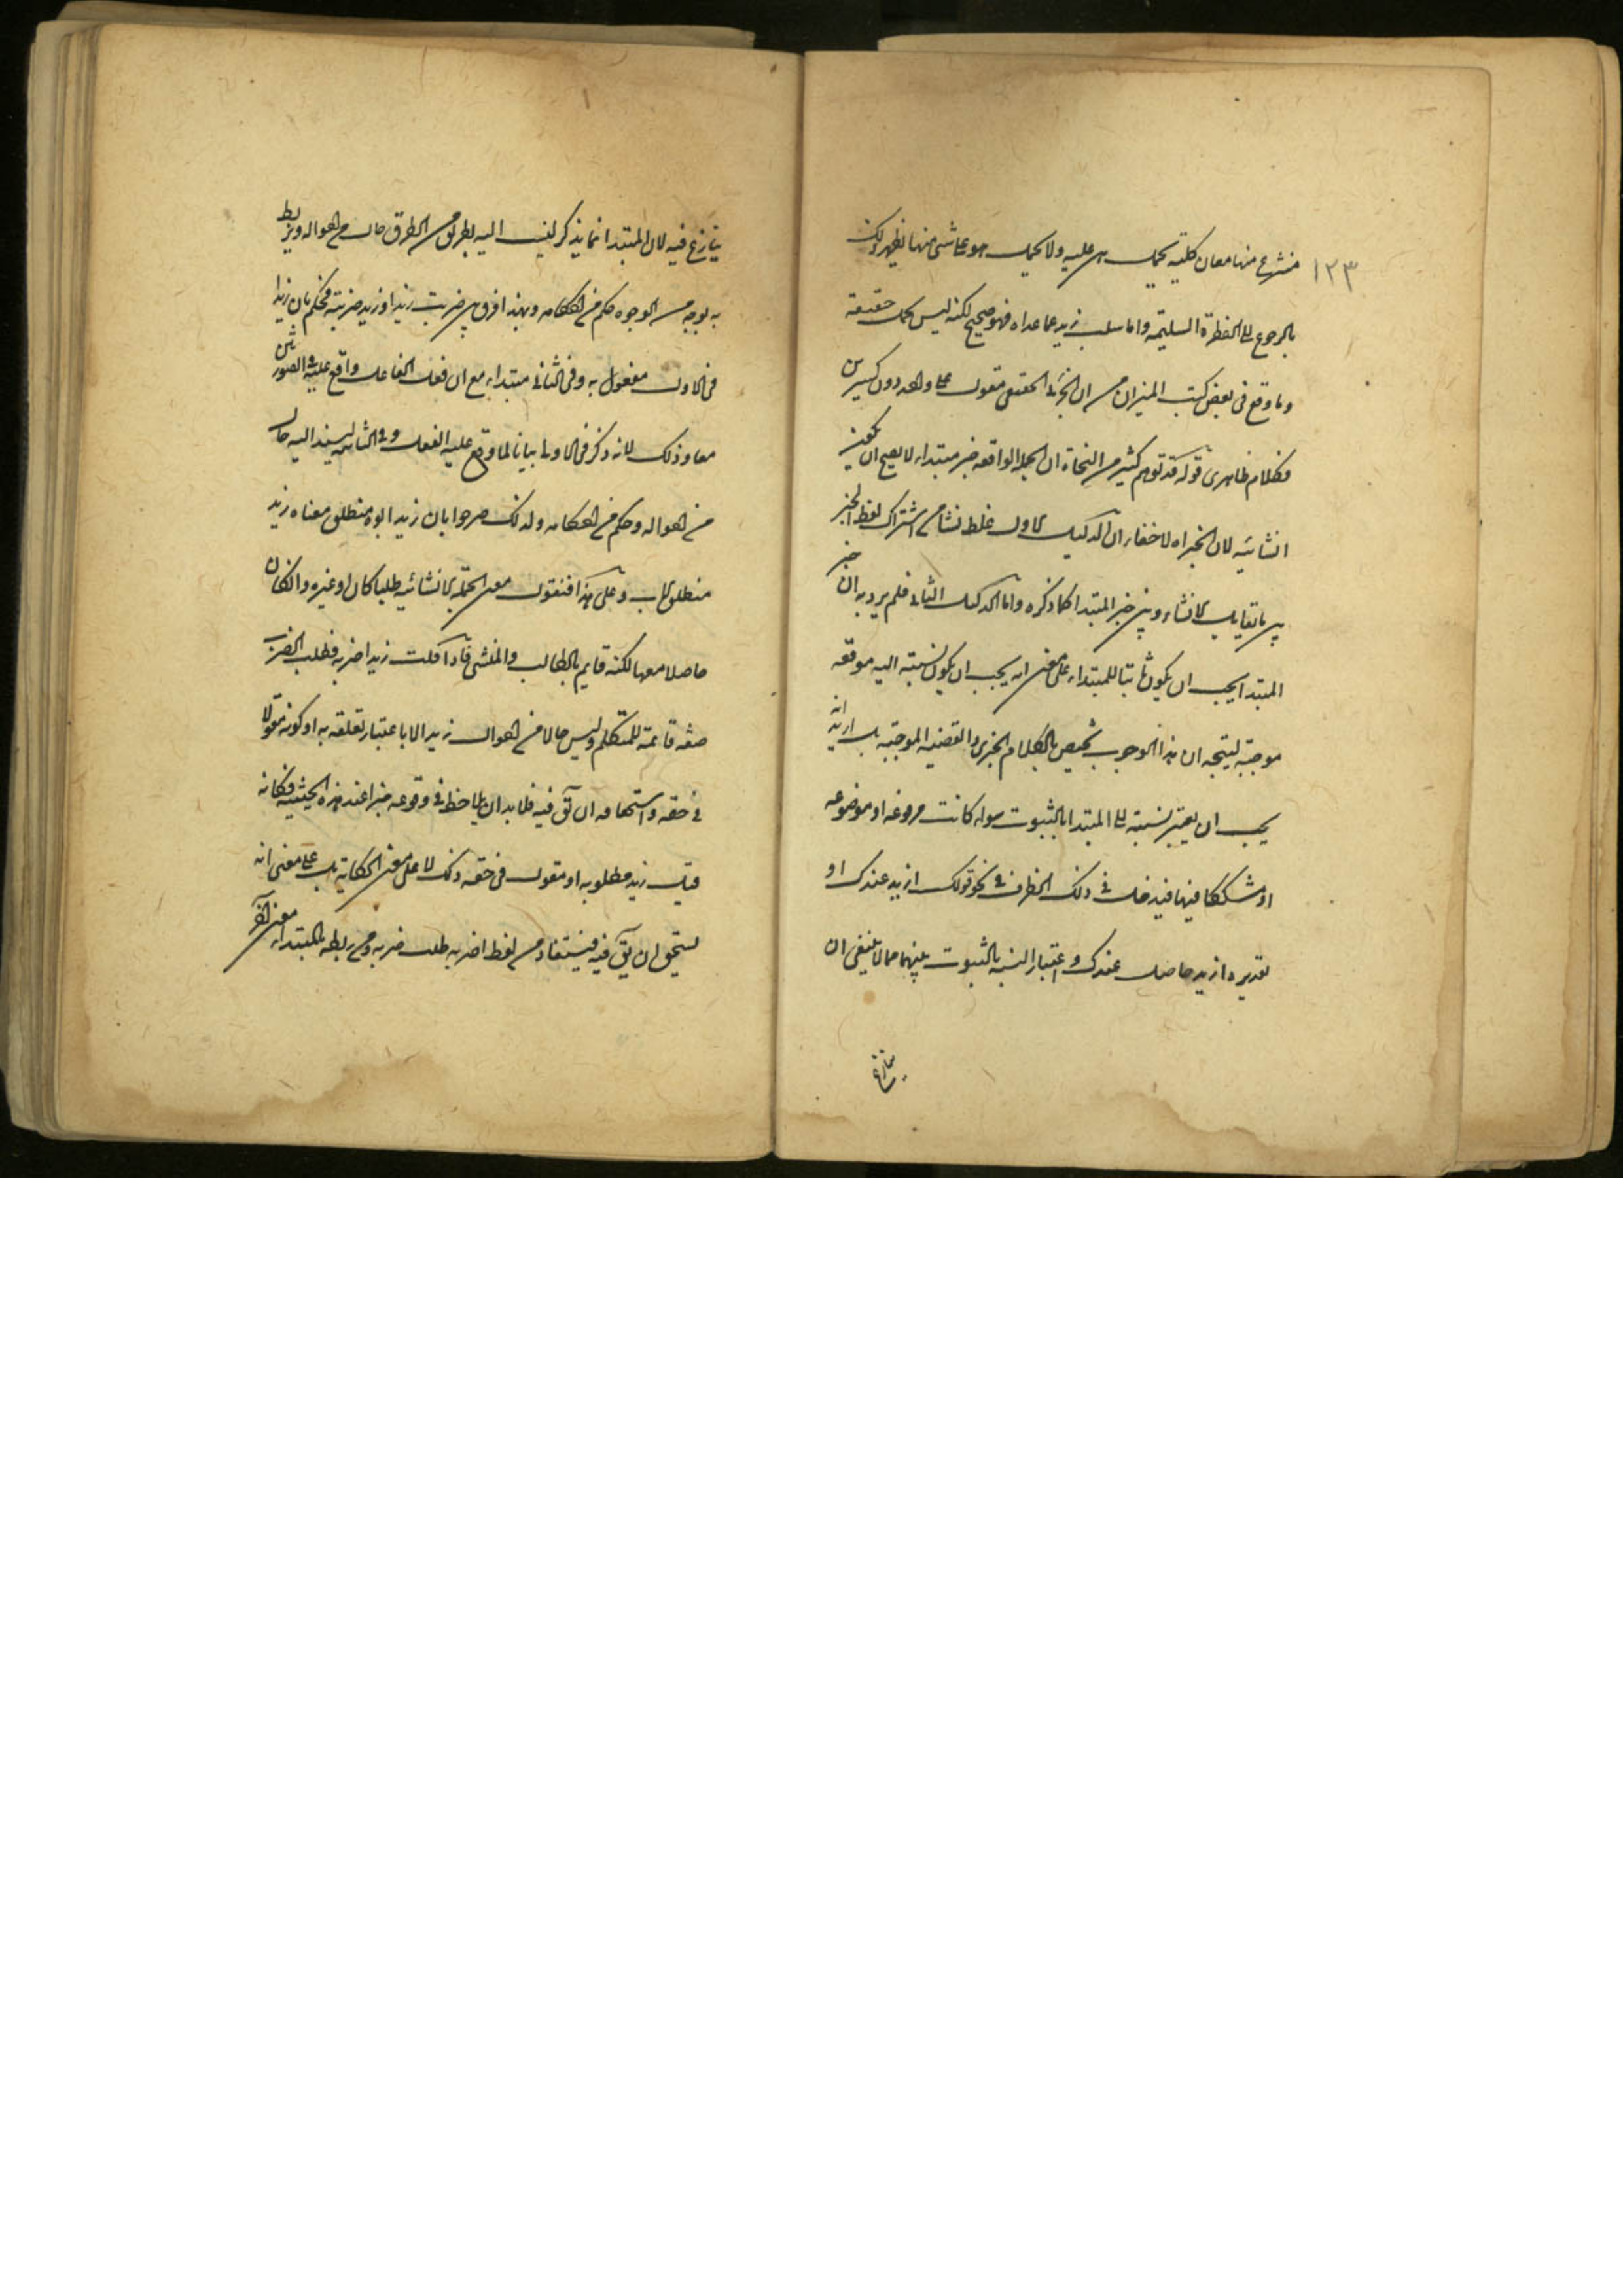 ١٢٣
منتزع منها معان كلية تحمل هي عليه ولا يحمل هو على شيء منها يظهر ذلك
بالرجوع الى الفطرة السليمة واما سلب زيد عما عداه فهو صحيح لكنه ليس بحمل حقيقة
وما وقع في بعض كتب الميزان من ان الجزئي الحقيقي مقول على واحد دون كثيرين
فكلام ظاهري قوله قد توهم كثير من النحاة ان الجملة الواقعة خبر مبتداء لا يصح ان يكون
انشائية لان الخبر اه لا خفاء ان الدليل الاول غلط نشا من اشتراك لفظ الخبر
بين ما يقابل الانشاء وبين خبر المبتدا كما ذكره واما الدليل الثاني فلم يرد به ان خبر
المبتدا يجب ان يكون ثابتا للمبتداء على معنى انه يجب ان يكون نسبته اليه موقعه
موجبة ليتجه ان هذا الوجوب يختص بالكلام الخبري والقضية الموجبة بل اريد انه
يجب ان يعتبر نسبته الى المبتدا بالثبوت سواء كانت مرفوعه او موضوعه
او مشككا فيها فيدخل في ذلك الظرف في نحو قولك ازيد عندك او
تقديره ازيد حاصل عندك واعتبار النسبة بالثبوت بينهما مما لا ينبغي ان
يتنازع
يتنازع فيه لان المبتدا انما يذكر لينسب اليه بطريق من الطرق حال من احواله ويربط
به بوجه من الوجوه حكم من احكامه وبهذا فرق بين ضربت زيدا وزيد ضربته فحكم بان زيدا
في الاول مفعول به وفي الثاني مبتداء مع ان فعل الفاعل واقع عليه في الصورتين
معا وذلك لانه ذكر في الاولى بيانا لما وقع عليه الفعل وفي الثانية ليسند اليه حال
من احواله وحكم من احكامه ولذلك صرحوا بان زيد ابوه منطلق معناه زيد
منطلق الاب وعلى هذا فنقول معنى الجملة الانشائية طلبا كان او غيره وان كان
حاصلا معها لكنه قايم بالطالب والمنشي فاذا قلت زيد اضربه فطلب الضرب
صفة قائمة للمتكلم وليس حالا من احوال زيد الا باعتبار تعلقه به او كونه مقولا
في حقه واستحقاقه ان يق فيه فلا بد ان يلاحظ في وقوعه خبرا عنه هذه الحيثية فكانه
قيل زيد مطلوبه او مقول في حقه ذلك لا على معنى الحكاية بل على معنى انه
يستحق ان يق فيه فيستفاد من لفظ اضربه طلب ضربه ومن ربطه بالمبتداء معنى آخر